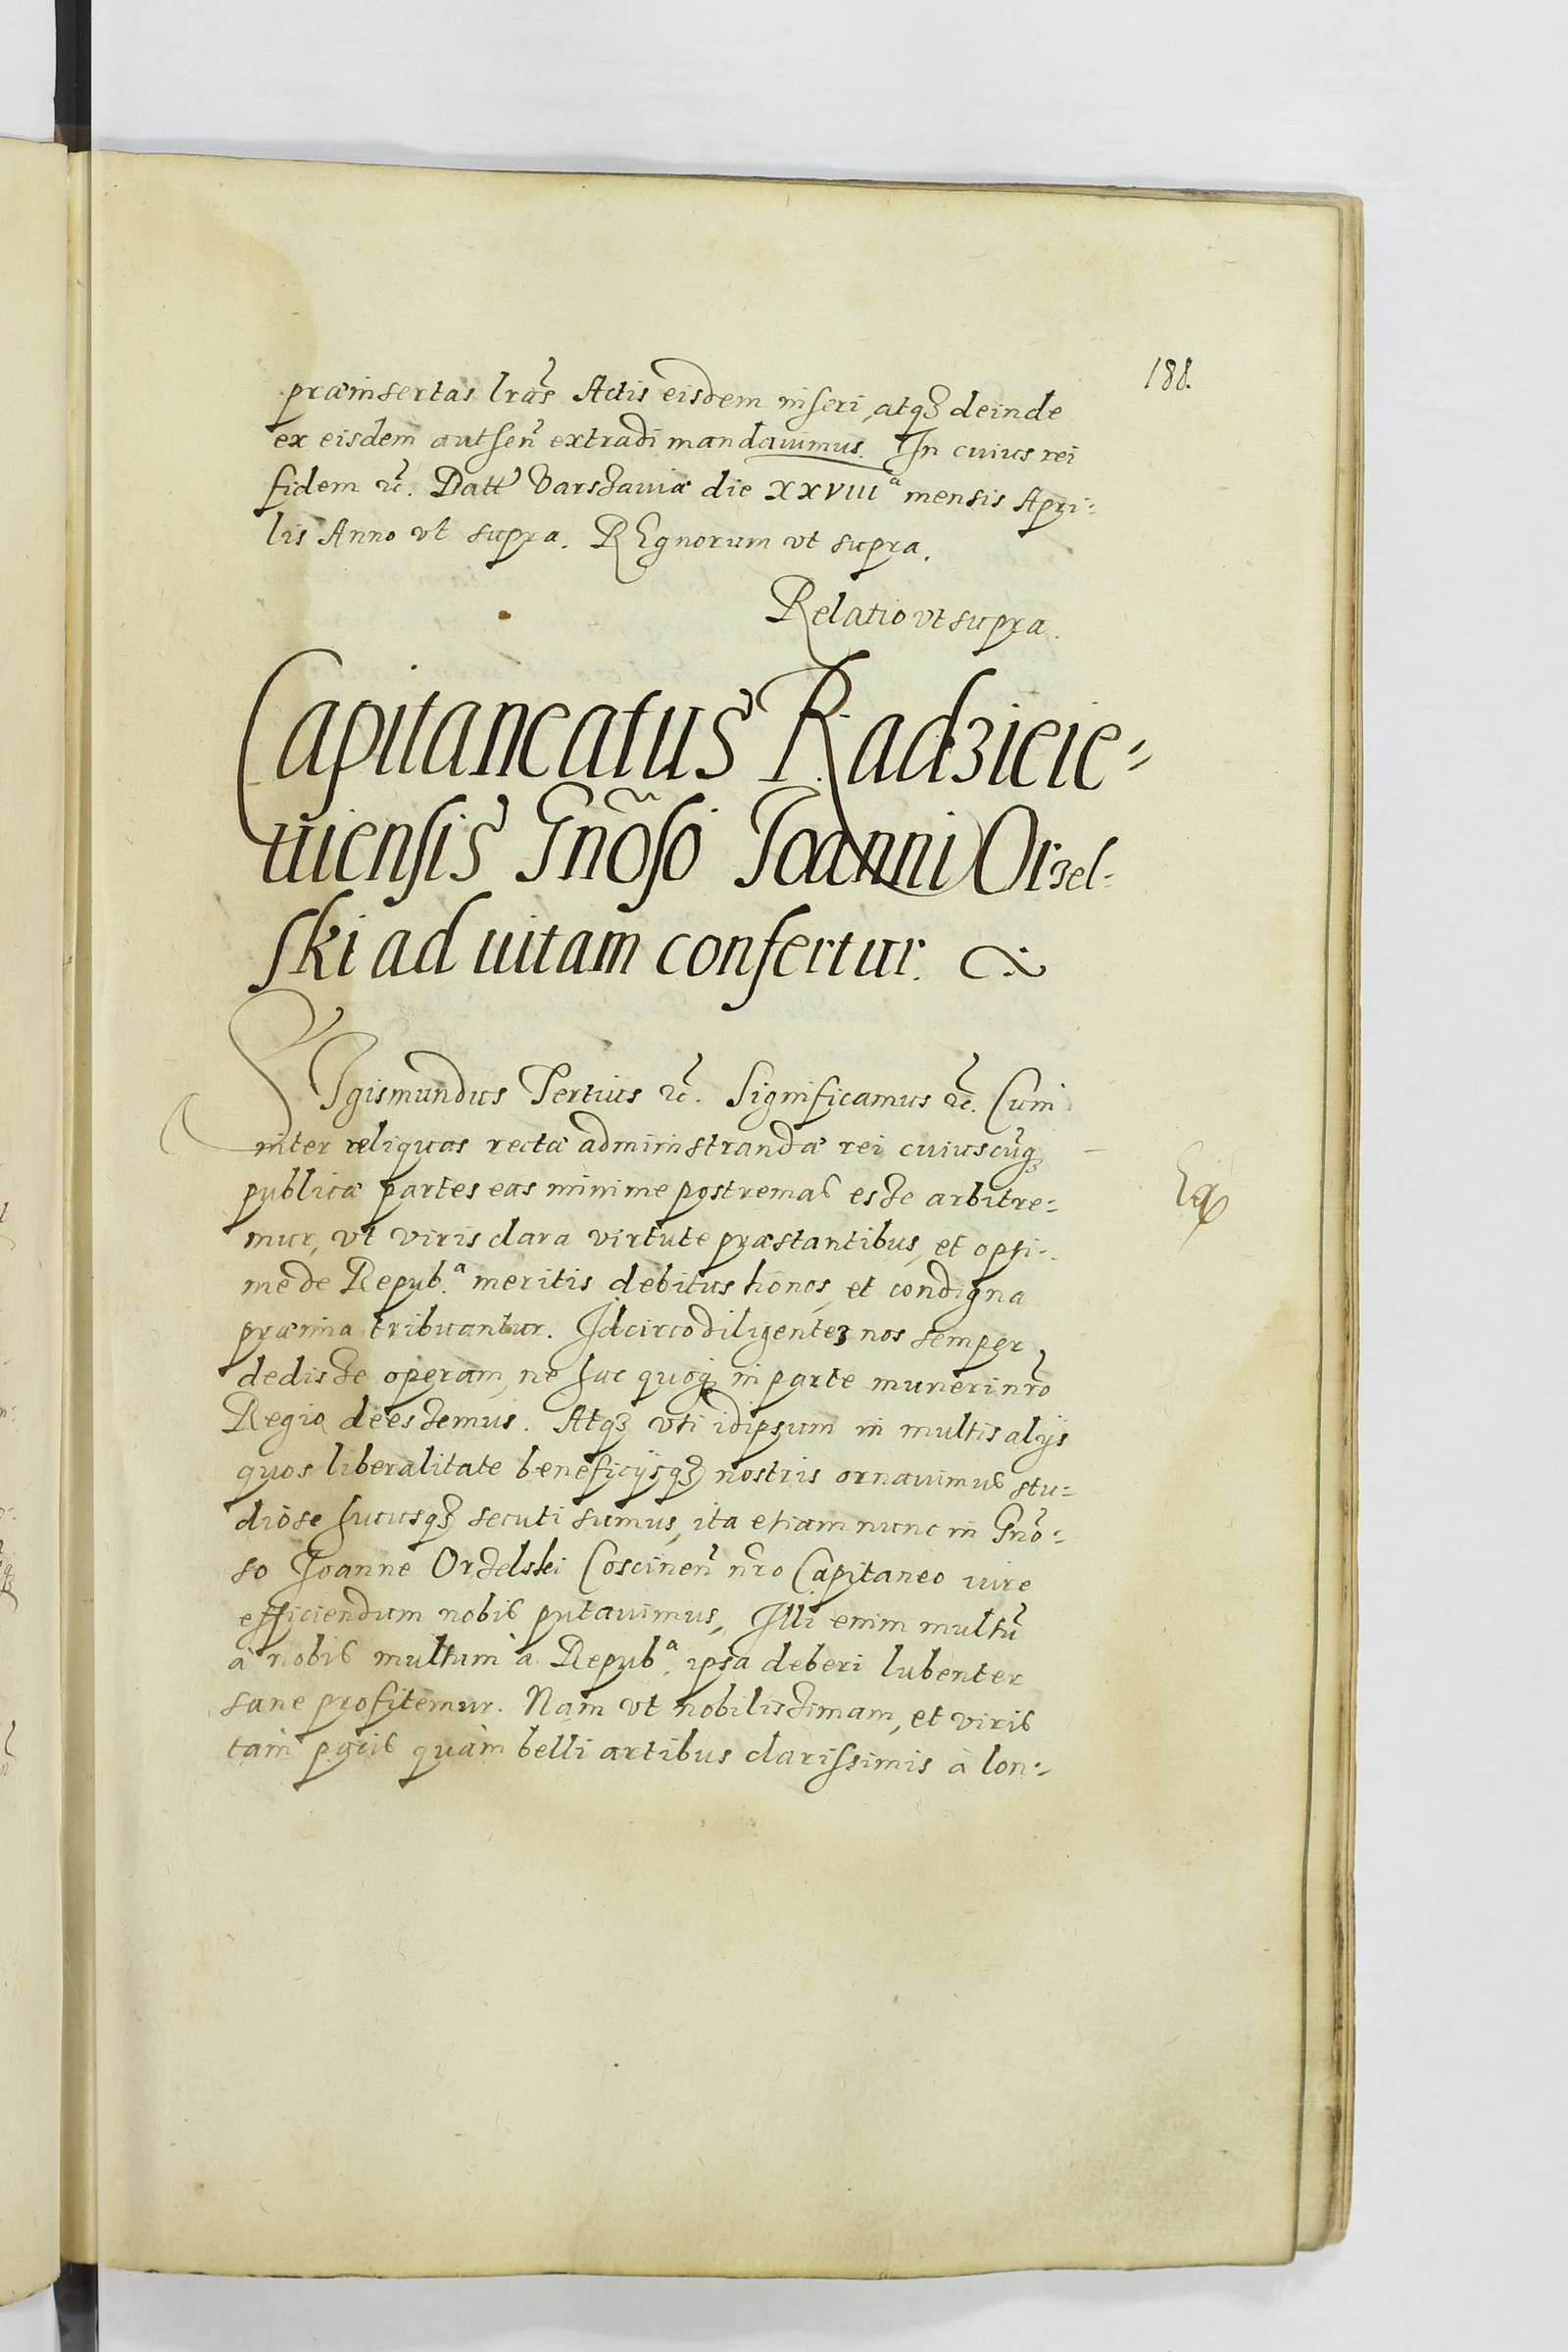 188.
præinsertas lras Actis eisdem inseri, atq3 deinde
ex eisdem autsen extradi mandauimus. In cuius rei
fidem &c. Datt Varssauiæ die XXVIIIa mensis Apri=
lis Anno vt supra. REgnorum vt supra.
Relatio vt supra.
Capitaneatus Radzieie=
uiensis Gnoso Joanni Orzel=
ski ad uitam confertur.
SIgismundus Tertius &c. Significamus &c. Cum
inter reliquas rectæ administrandæ rei cuiuscuq3
publicæ partes eas minime postremas esse arbitre=
mur, vt viris clara virtute præstantibus, et opti=
me de Repub.a meritis debitus honos, et condigna
præmia tribuantur. Idcirco diligenter nos semper
dedisse operam, ne hac quoq3 in parte muneri nro
Regio deessemus. Atq3 vti idipsum in multis alijs
quos liberalitate beneficijsq3 nostris ornauimus stu=
diose hucusq3 secuti sumus, ita etiam nunc in Gno=
so Joanne Orzelski Coscinen nro Capitaneo iure
efficiendum nobis putauimus, Illi enim multu
à nobis multum à Repub.a ipsa deberi lubenter
sane profitemur. Nam vt nobilissimam, et viris
tam pacis quàm belli artibus clarissimis à lon=